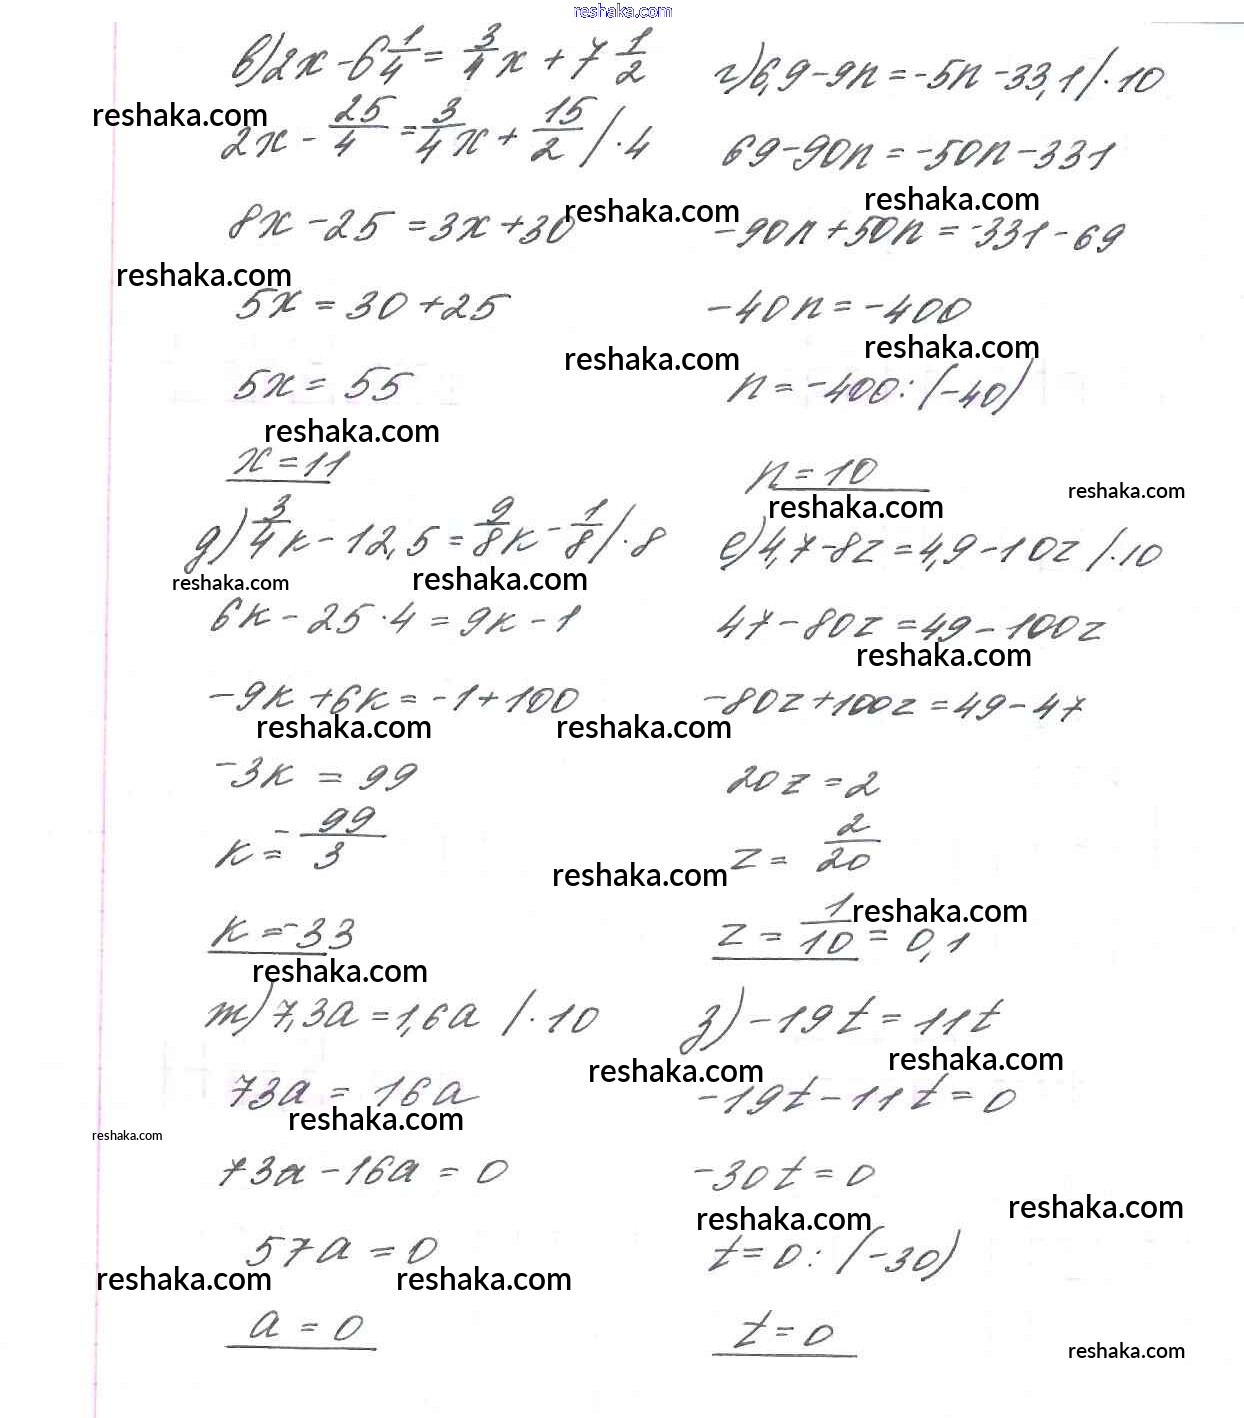 reshaka.com
в) 2x - 6 1/4 = 3/4 x + 7 1/2
reshaka.com
2x - 25/4 = 3/4 x + 15/2 / ·4
8x - 25 = 3x + 30
reshaka.com
reshaka.com
5x = 30 + 25
reshaka.com
5x = 55
reshaka.com
x = 11
г) 6,9 - 9n = -5n - 33,1 / ·10
69 - 90n = -50n - 331
reshaka.com
-90n + 50n = -331 - 69
-40n = -400
reshaka.com
n = -400 : (-40)
n = 10
reshaka.com
reshaka.com
д) 3/4 k - 12,5 = 9/8 k - 1/8 / ·8
reshaka.com
reshaka.com
6k - 25·4 = 9k - 1
-9k + 6k = -1 + 100
reshaka.com
reshaka.com
-3k = 99
k = - 99/3
reshaka.com
k = -33
reshaka.com
е) 4,7 - 8z = 4,9 - 10z / ·10
47 - 80z = 49 - 100z
reshaka.com
-80z + 100z = 49 - 47
20z = 2
z = 2/20
reshaka.com
z = 1/10 = 0,1
ж) 7,3a = 1,6a / ·10
reshaka.com
73a = 16a
reshaka.com
reshaka.com
73a - 16a = 0
57a = 0
reshaka.com
reshaka.com
a = 0
з) -19t = 11t
reshaka.com
-19t - 11t = 0
-30t = 0
reshaka.com
reshaka.com
t = 0 : (-30)
t = 0
reshaka.com